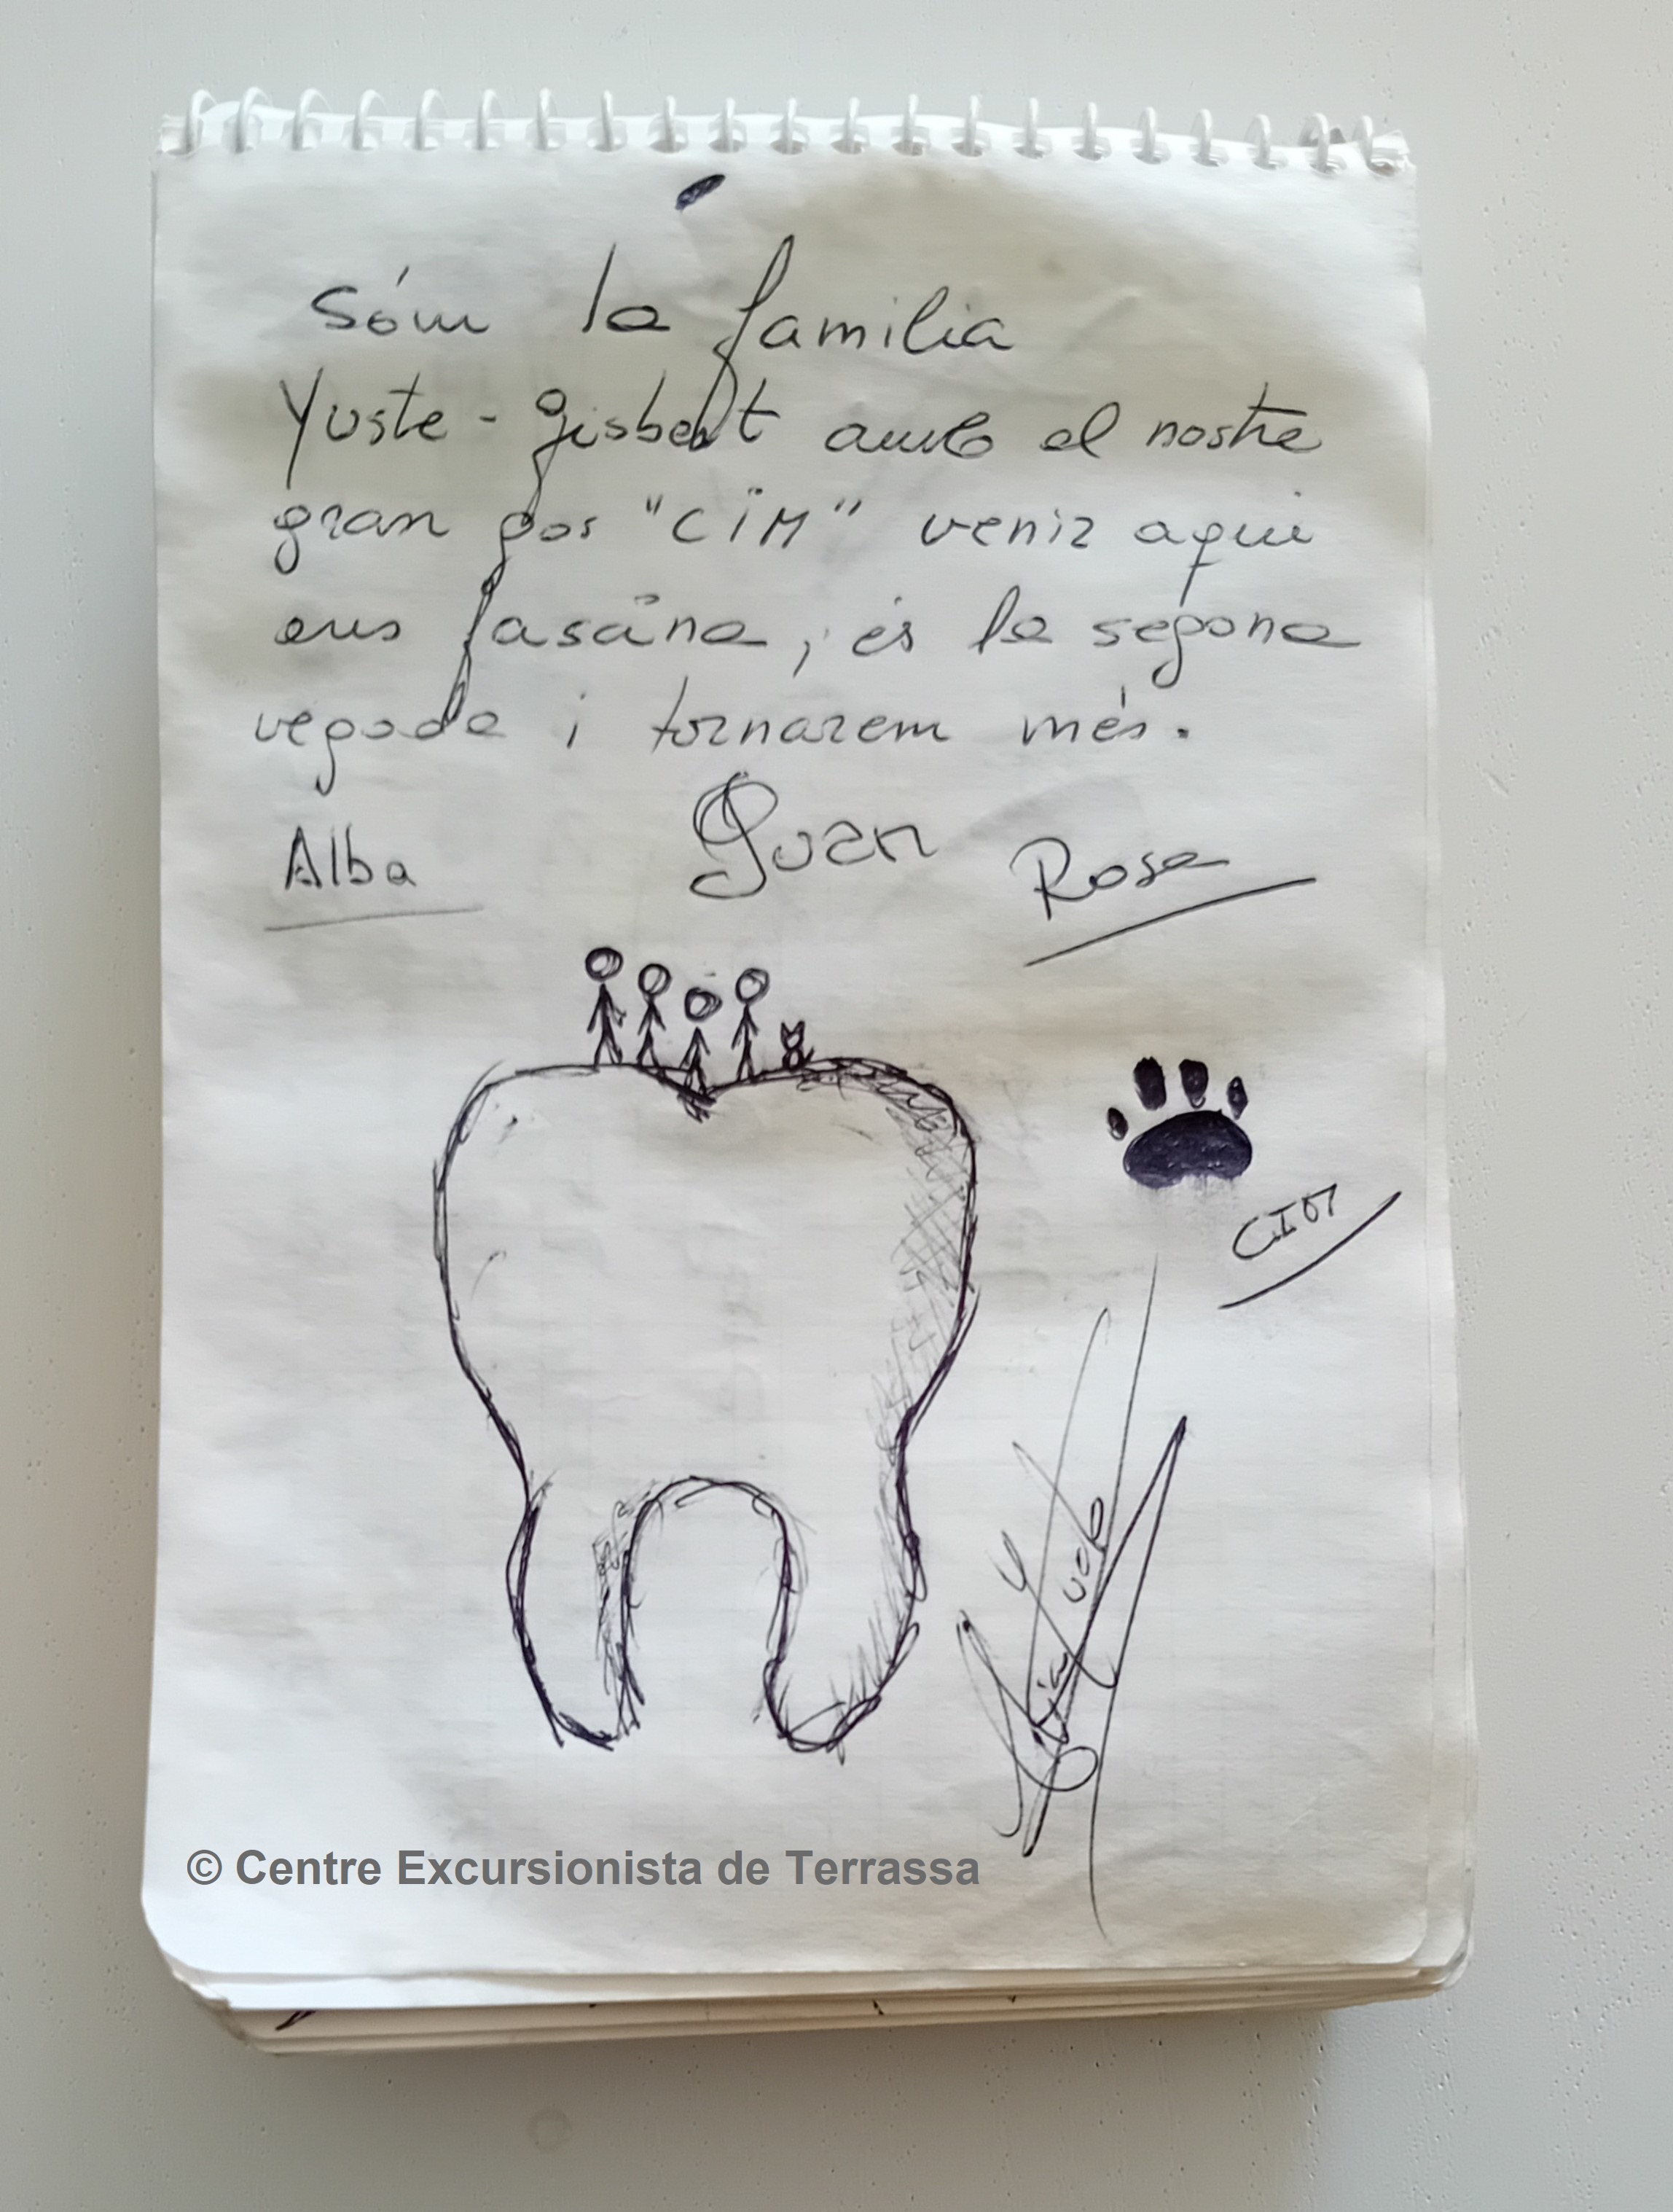 Sóm la familia
Yuste - Gisbert amb el nostre
gran gos "CÏM" venir aqui
ens fascina, és la segona
vegada i tornarem més.
Alba Juan Rosa
CIM
© Centre Excursionista de Terrassa